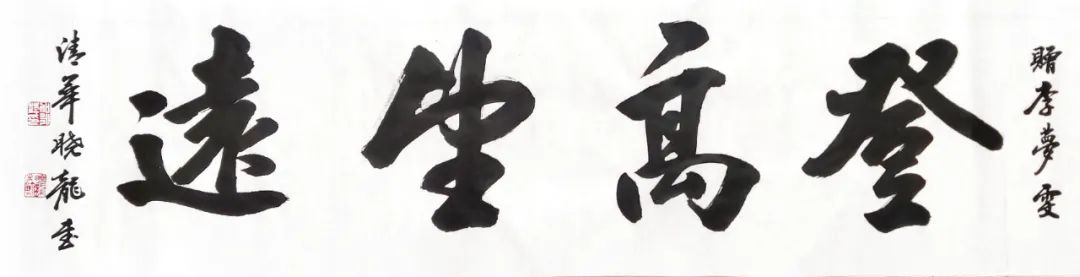 贈李夢雯
登高望遠
清華曉龍書